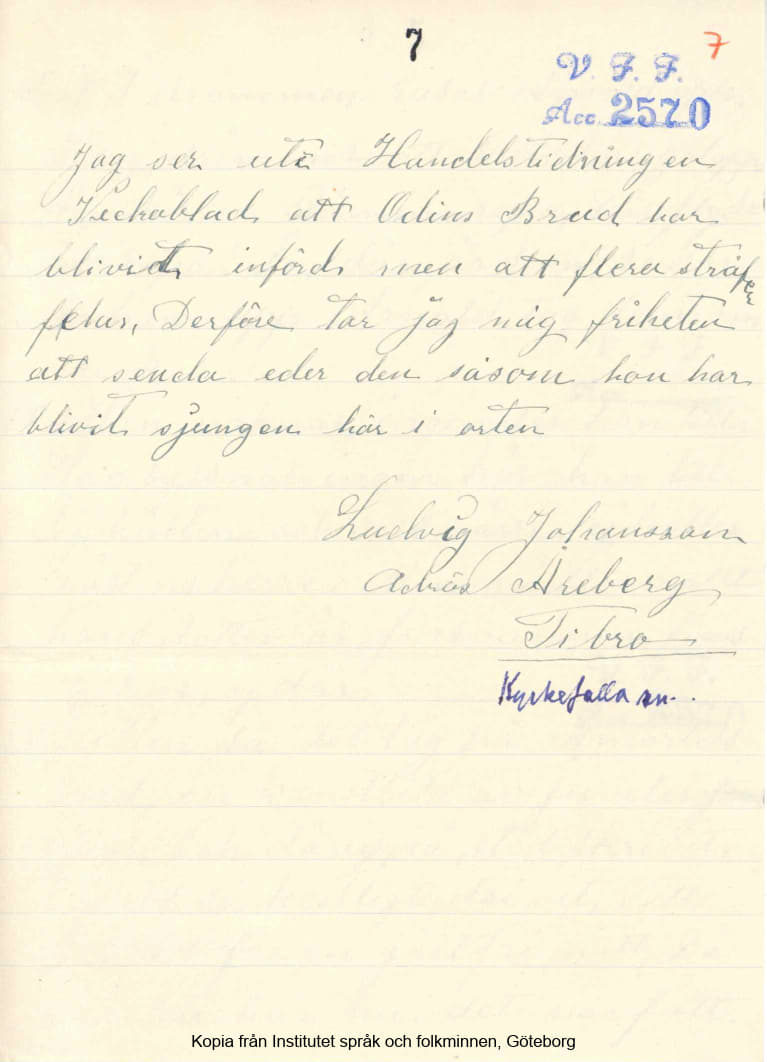 7
7
V. F. F.
Acc. 2570
Jag ser uti Handelstidningen
Veckoblad att Odins Brud har
blividt införd men att flera stråfer
felas, Derföre tar jag mig friheten
att senda eder den såsom hon har
blivit sjungen här i orten
Ludvig Johansson
Adräs Åreberg
Tibro
Kyrkefalla sn.
Kopia från Institutet språk och folkminnen, Göteborg